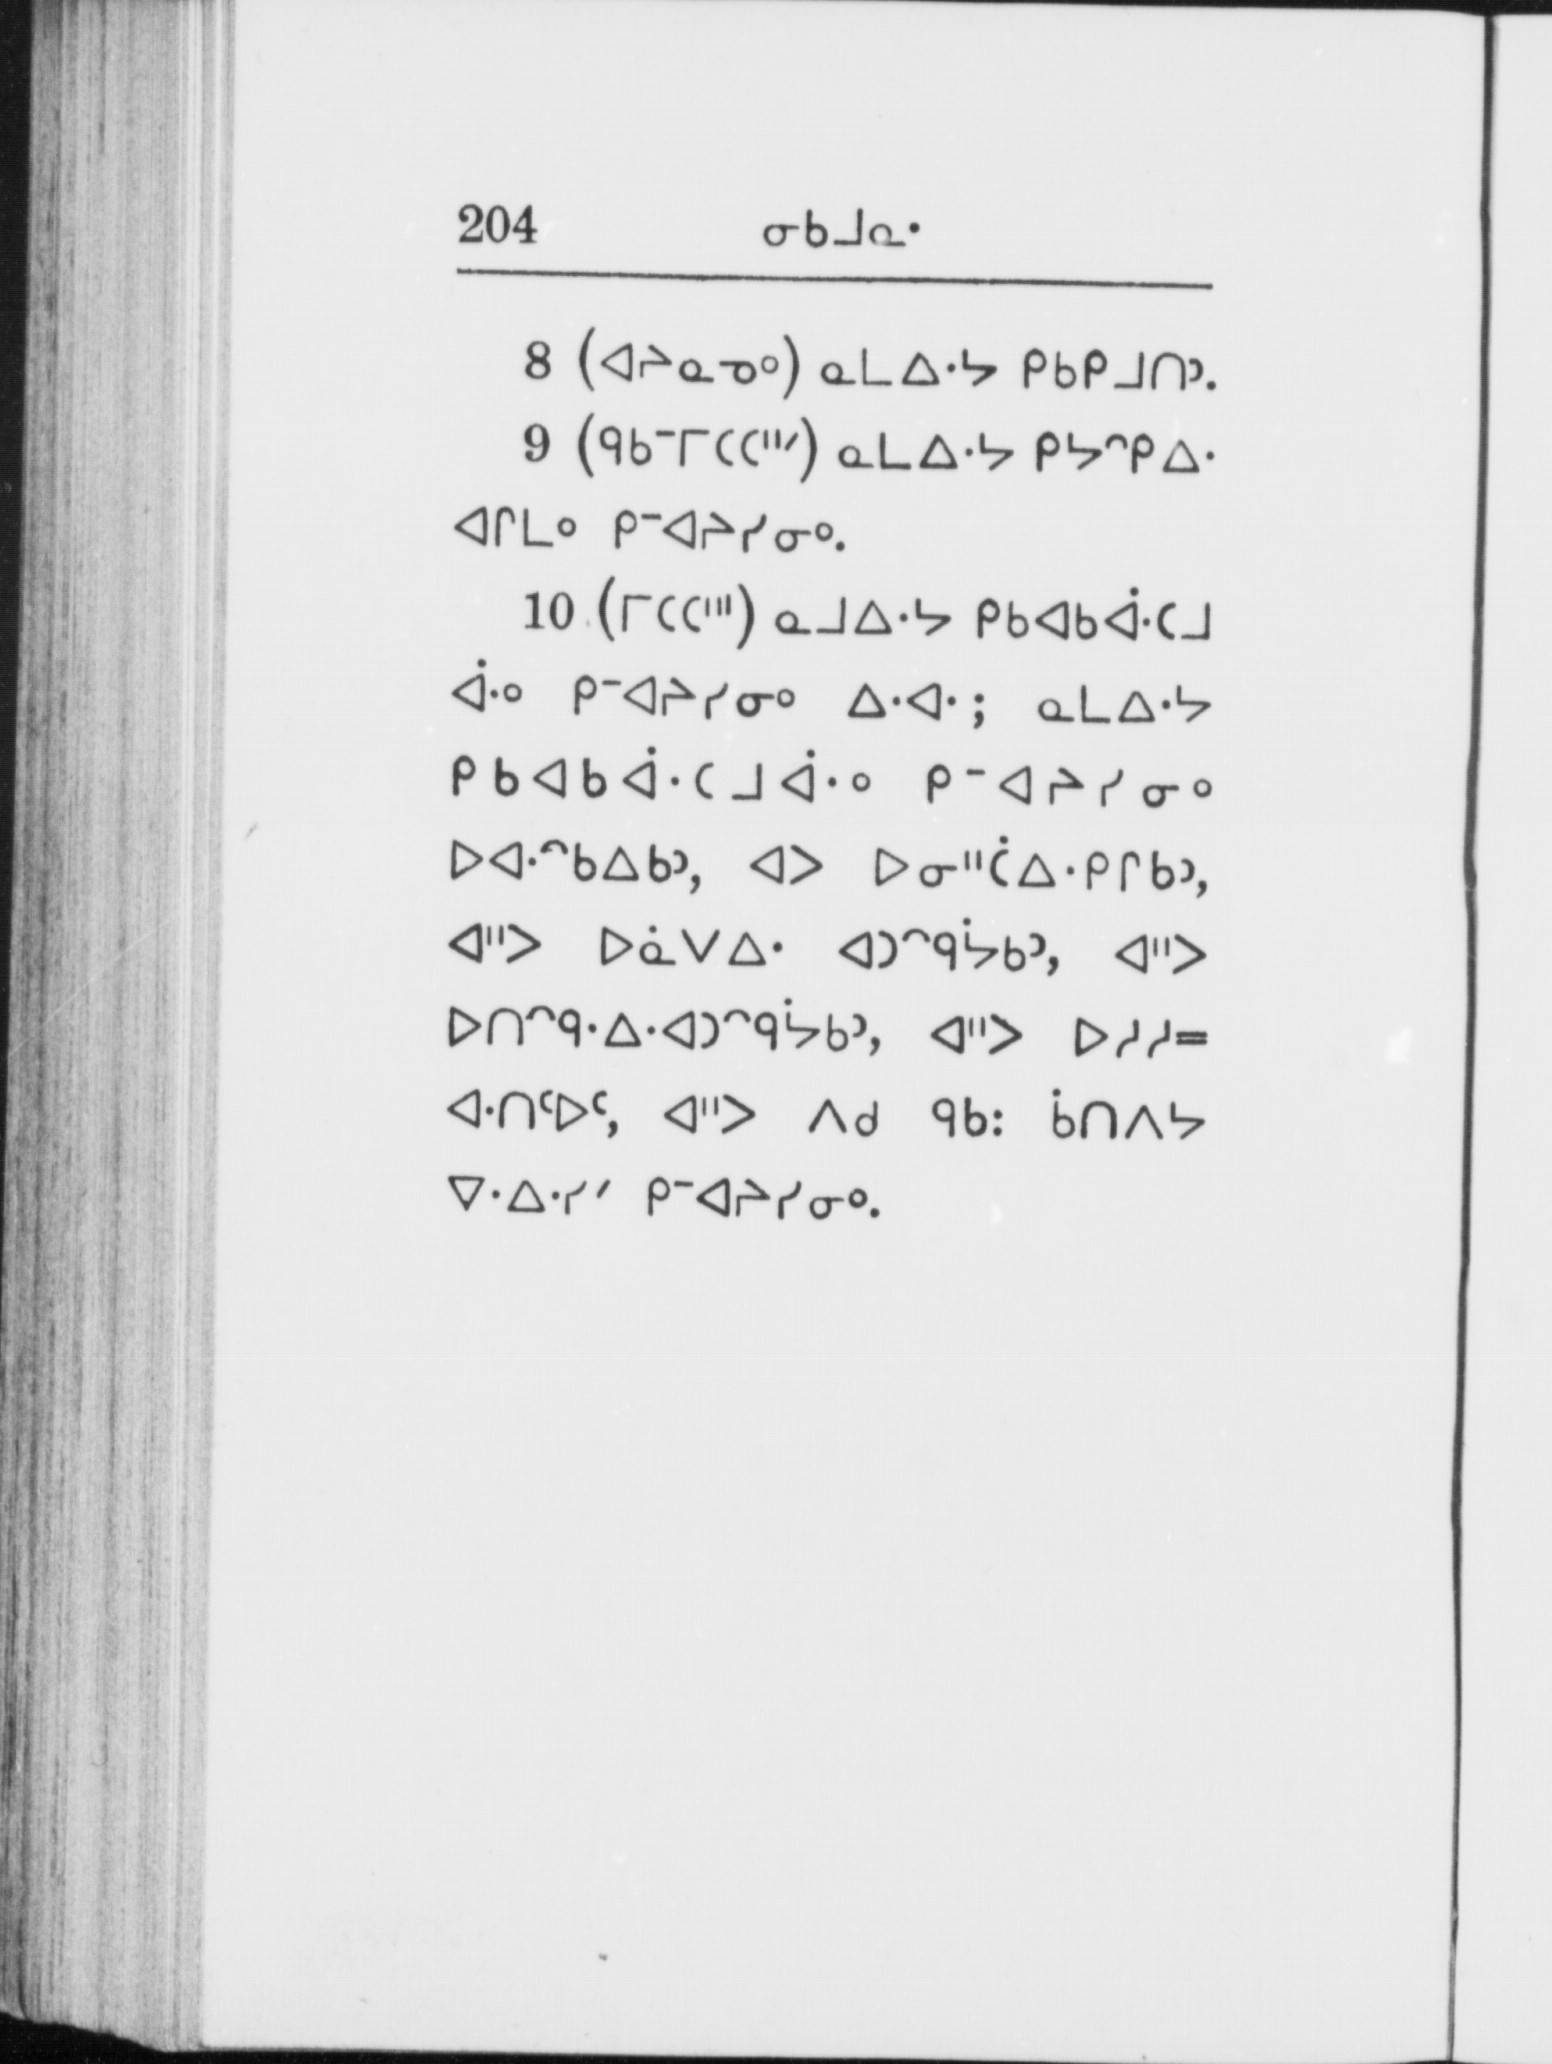 204 ᓂᑲᒧᓇᐧ
8 (ᐊᔨᓇᓀᐤ) ᓇᒪᐏᔭ ᑭᑲᑭᒧᑎᐣ.
9 (ᑫᑲᐨᒥᑕᑕᐦᐟ) ᓇᒪᐏᔭ ᑭᔭᐢᑭᐃᐧ
ᐊᒋᒪᐤ ᑭᐨᐊᔨᓯᓂᐤ.
10 (ᒥᑕᑕᐦᐟ) ᓇᒧᐏᔭ ᑭᑲᐊᑲᐚᑕᒧ
ᐚᐤ ᑭᐨᐊᔨᓯᓂᐤ ᐃᐧᐊᐧ; ᓇᒪᐏᔭ
ᑭᑲᐊᑲᐚᑕᒧᐚᐤ ᑭᐨᐊᔨᓯᓂᐤ
ᐅᐊᐧᐢᑲᐃᑲᐣ, ᐊᐳ ᐅᓂᐦᑖᐏᑭᒋᑲᐣ,
ᐊᐦᐳ ᐅᓈᐯᐃᐧ ᐊᑐᐢᑫᔮᑲᐣ, ᐊᐦᐳ
ᐅᑎᐢᑫᐧᐏᐊᑐᐢᑫᔮᑲᐣ, ᐊᐦᐳ ᐅᓱᓱ=
ᐊᐧᑎᐢᐅᐢ, ᐊᐦᐳ ᐱᑯ ᑫᑲ: ᑳᑎᐱᔭ
ᐍᐏᓯᐟ ᑭᐨᐊᔨᓯᓂᐤ.